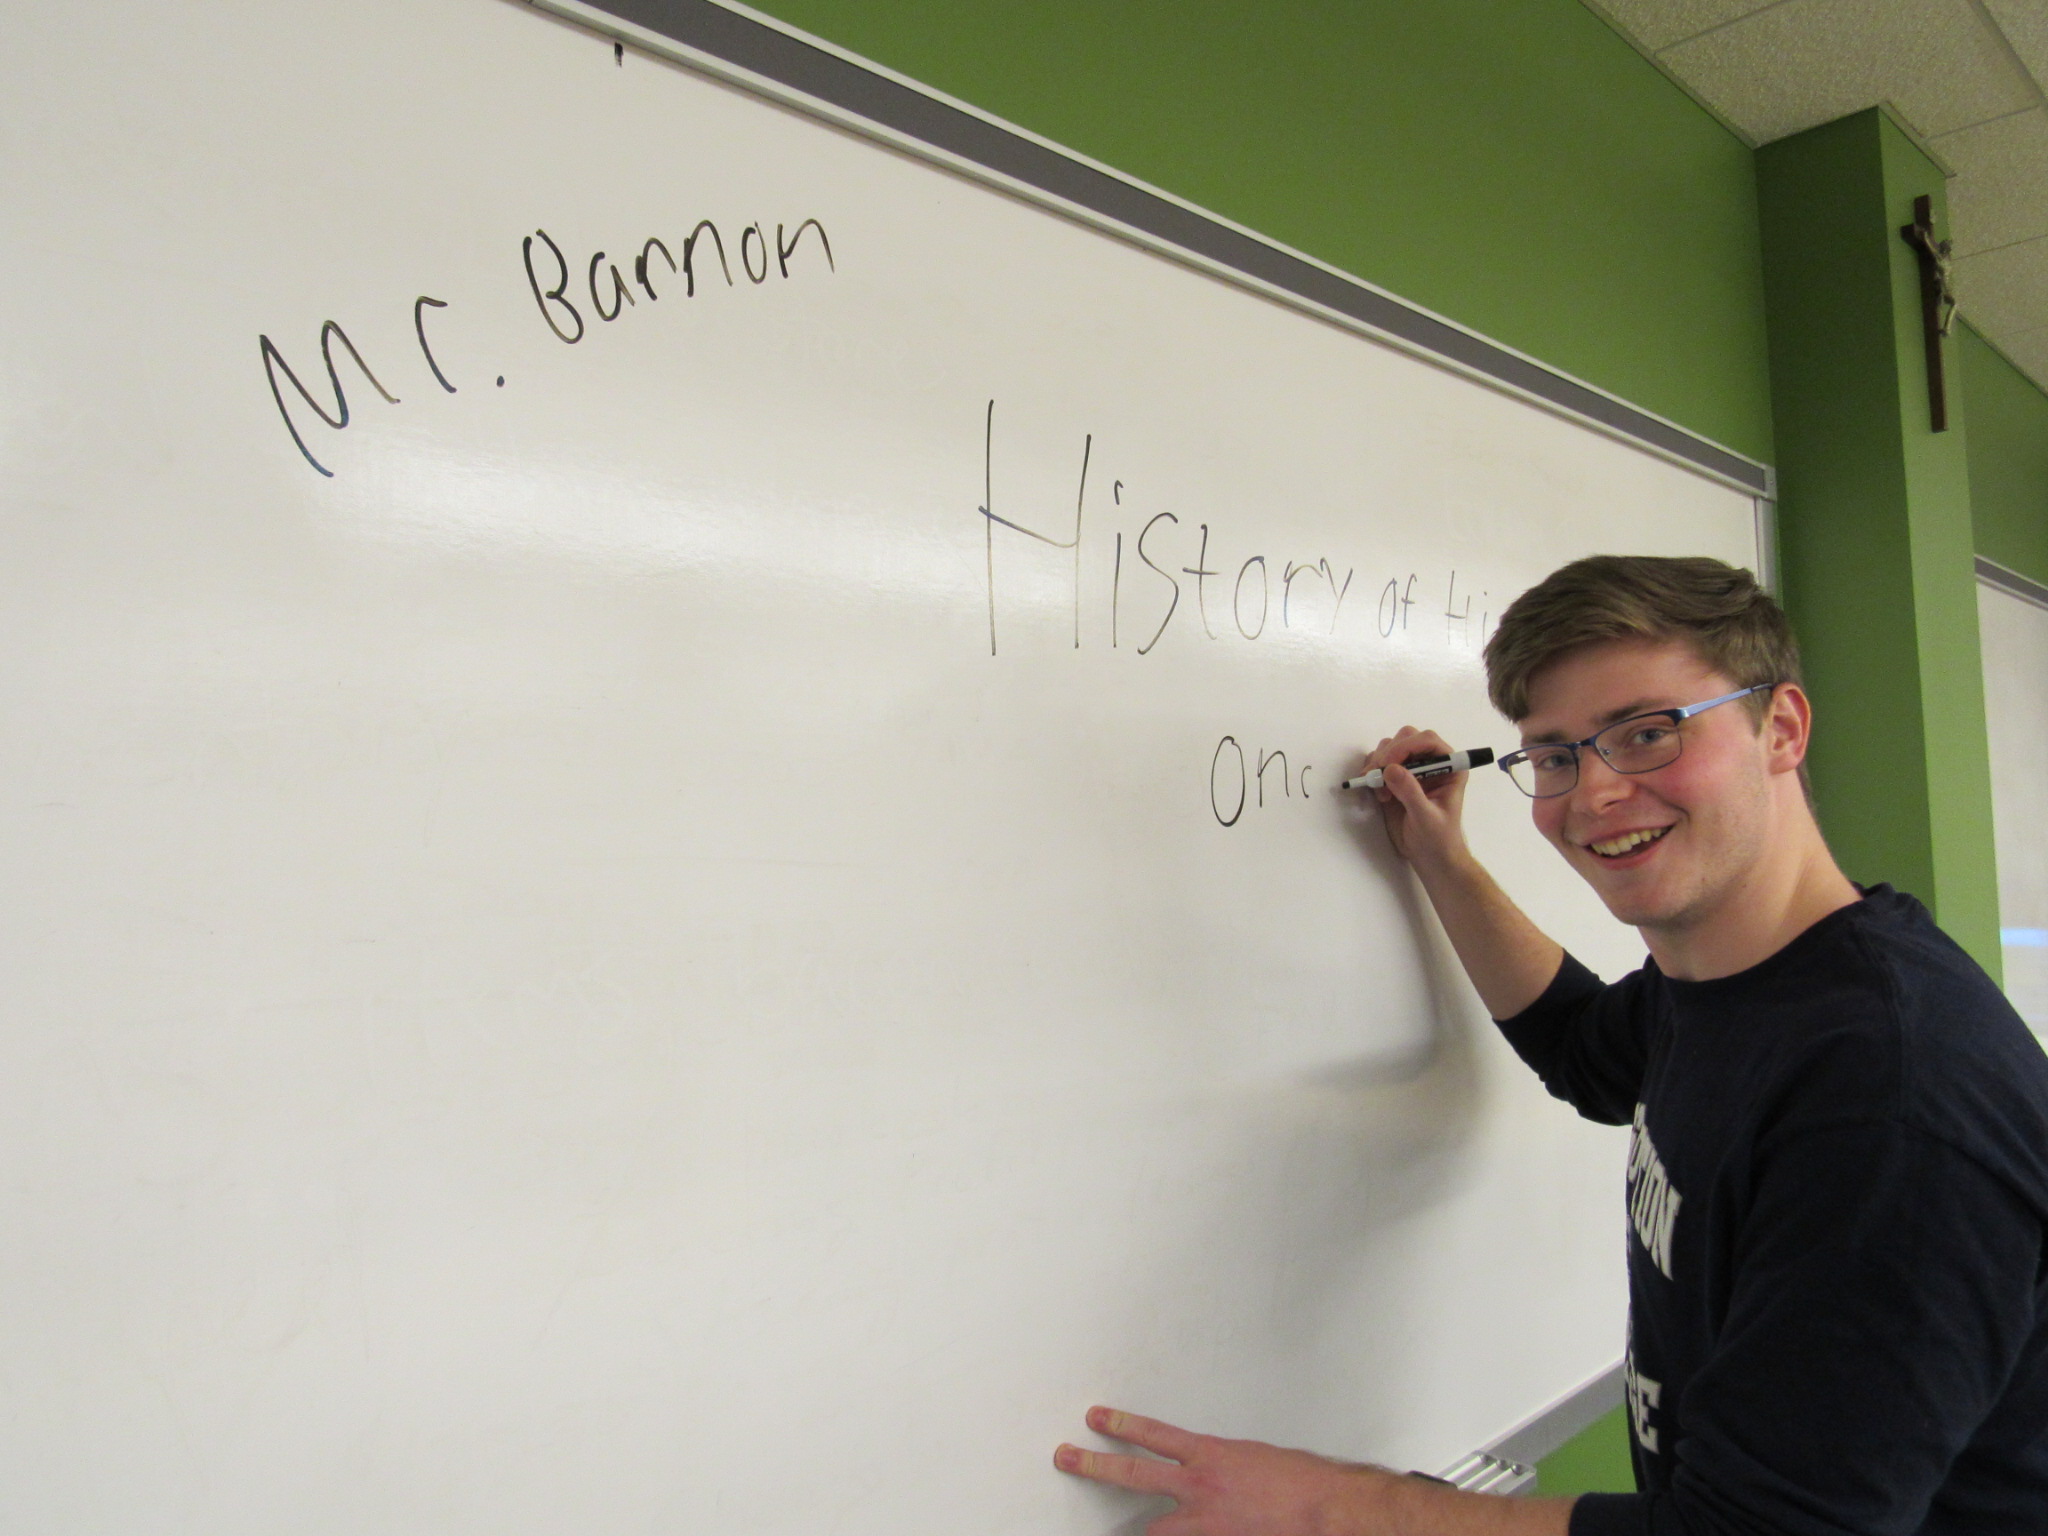 Mr. Bannon
History of Hi
Onc